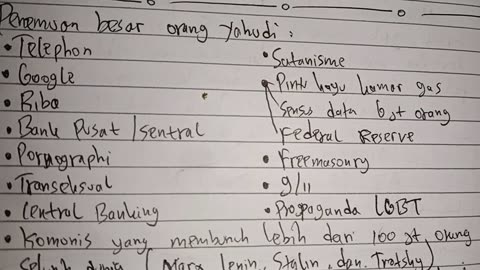 Penemuan besar orang Yahudi:
• Telephon
• Google
• Riba
• Bank Pusat / sentral
• Pornographi
• Transeksual
• Central Banking
• Satanisme
• Pintu kayu kamar gas
Sensus data 6 jt orang
Federal Reserve
• Freemasonry
• 9/11
• Propaganda LGBT
• Komonis yang membunuh lebih dari 100 jt orang
(Marx, Lenin, Stalin, dan Trotsky)